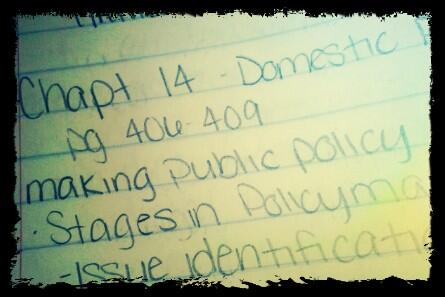 Chapt 14 - Domestic
pg 406-409
making public policy
· Stages in Policyma
- Issue identificati